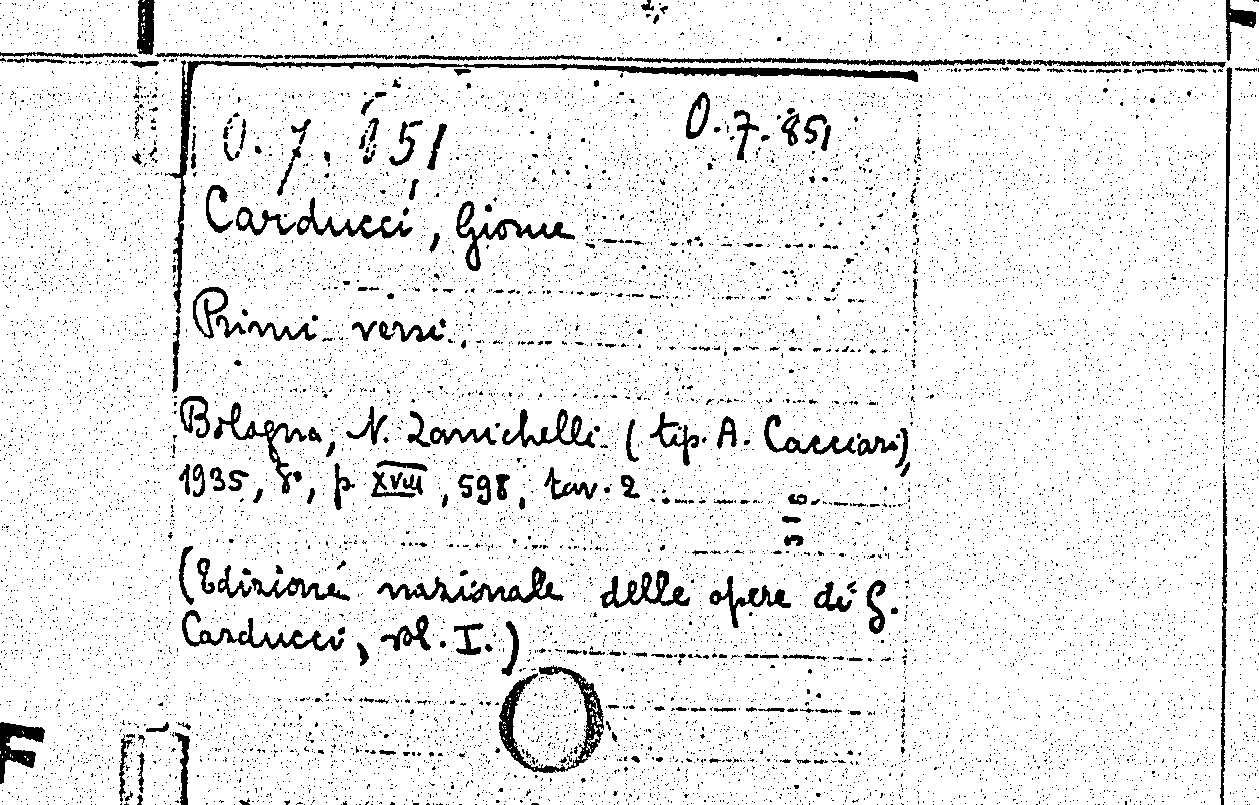 O. 7. 851 O. 7. 851
Carducci, Giosue
Primi versi.
Bologna, N. Zanichelli (tip. A. Cacciari),
1935, 8°, p. XVIII, 598, tav. 2
(Edizione nazionale delle opere di G.
Carducci, vol. I.)
F